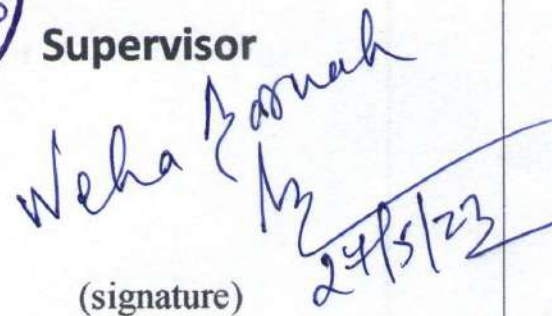 Supervisor
Neha Barnah
27/5/23
(signature)